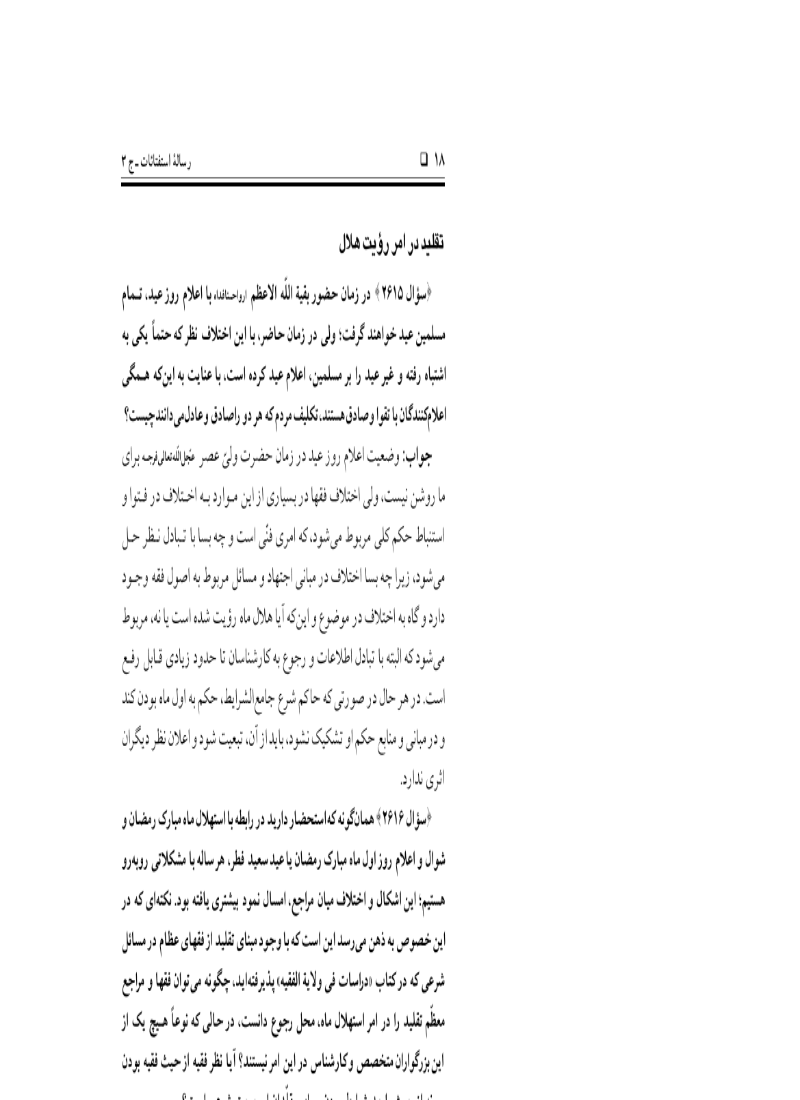 ۱۸ □ رسالهٔ استفتائات ـ ج ۳
تقلید در امر رؤیت هلال
﴿سؤال ۲۶۱۵﴾ در زمان حضور بقیة اللّه الاعظم ارواحنافداه با اعلام روز عید، تـمام
مسلمین عید خواهند گرفت؛ ولی در زمان حاضر، با این اختلاف نظر که حتماً یکی به
اشتباه رفته و غیر عید را بر مسلمین، اعلام عید کرده است، با عنایت به این‌که هـمگی
اعلام‌کنندگان با تقوا و صادق هستند، تکلیف مردم که هر دو را صادق و عادل می‌دانند چیست؟
جواب: وضعیت اعلام روز عید در زمان حضرت ولیّ عصر عجّل‌اللّه‌تعالی‌فرجـه برای
ما روشن نیست، ولی اختلاف فقها در بسیاری از این مـوارد بـه اخـتلاف در فـتوا و
استنباط حکم کلی مربوط می‌شود، که امری فنّی است و چه بسا با تـبادل نـظر حـل
می‌شود، زیرا چه بسا اختلاف در مبانی اجتهاد و مسائل مربوط به اصول فقه وجـود
دارد و گاه به اختلاف در موضوع و این‌که آیا هلال ماه رؤیت شده است یا نه، مربوط
می‌شود که البته با تبادل اطلاعات و رجوع به کارشناسان تا حدود زیادی قـابل رفـع
است. در هر حال در صورتی که حاکم شرع جامع‌الشرایط، حکم به اول ماه بودن کند
و در مبانی و منابع حکم او تشکیک نشود، باید از آن، تبعیت شود و اعلان نظر دیگران
اثری ندارد.
﴿سؤال ۲۶۱۶﴾ همان‌گونه که استحضار دارید در رابطه با استهلال ماه مبارک رمضان و
شوال و اعلام روز اول ماه مبارک رمضان یا عید سعید فطر، هر ساله با مشکلاتی روبه‌رو
هستیم؛ این اشکال و اختلاف میان مراجع، امسال نمود بیشتری یافته بود. نکته‌ای که در
این خصوص به ذهن می‌رسد این است که با وجود مبنای تقلید از فقهای عظام در مسائل
شرعی که در کتاب «دراسات فی ولایة الفقیه» پذیرفته‌اید، چگونه می‌توان فقها و مراجع
معظّم تقلید را در امر استهلال ماه، محل رجوع دانست، در حالی که نوعاً هـیچ یک از
این بزرگواران متخصص و کارشناس در این امر نیستند؟ آیا نظر فقیه از حیث فقیه بودن